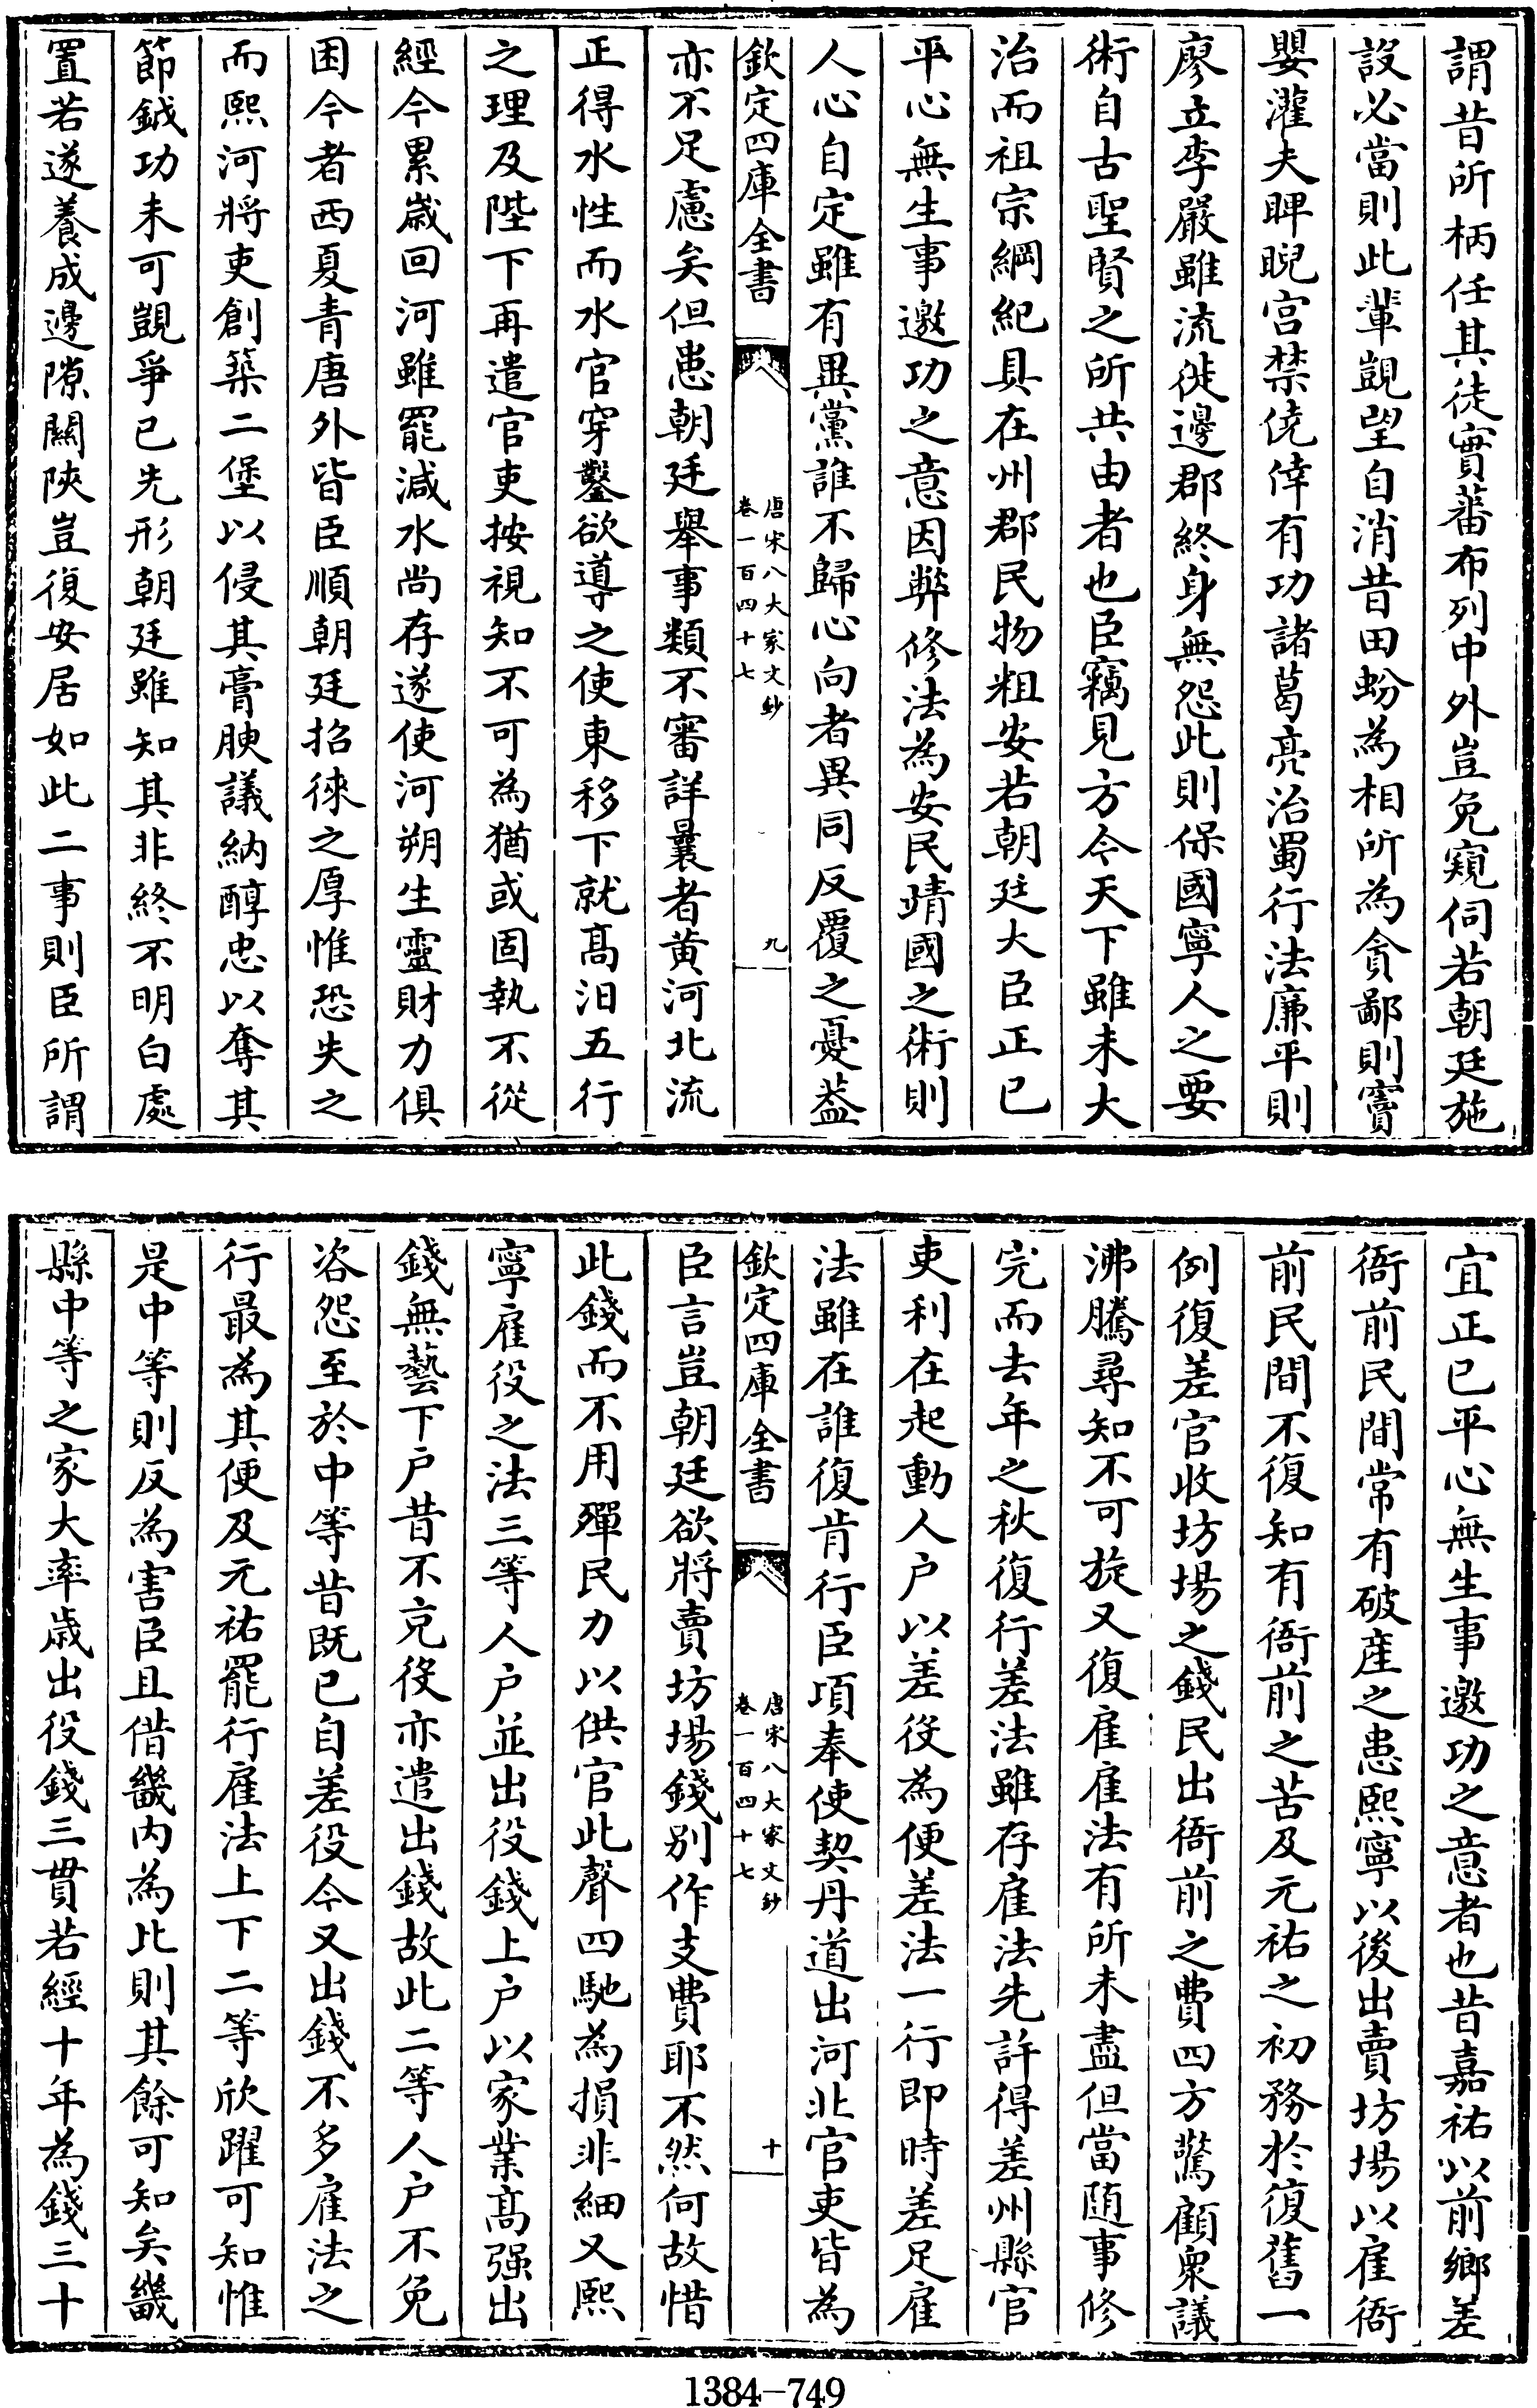 謂昔所柄任其徒實蕃布列中外豈免窺伺若朝廷施
設必當則此輩覬望自消昔田蚡為相所為貪鄙則竇
嬰灌夫睥睨宫禁僥倖有功諸葛亮治蜀行法廉平則
廖立李嚴雖流徙邊郡終身無怨此則保國寧人之要
術自古聖賢之所共由者也臣竊見方今天下雖未大
治而祖宗綱紀具在州郡民物粗安若朝廷大臣正已
平心無生事邀功之意因弊修法為安民靖國之術則
人心自定雖有異黨誰不歸心向者異同反覆之憂葢
欽定四庫全書
唐宋八大家文鈔
卷一百四十七
九
亦不足慮矣但患朝廷舉事類不審詳曩者黄河北流
正得水性而水官穿鑿欲導之使東移下就髙汨五行
之理及陛下再遣官吏按視知不可為猶或固執不從
經今累嵗回河雖罷減水尚存遂使河朔生靈財力俱
困今者西夏青唐外皆臣順朝廷招徠之厚惟恐失之
而熙河將吏創築二堡以侵其膏腴議納醇忠以奪其
節鉞功未可覬爭已先形朝廷雖知其非終不明白處
置若遂養成邊隙關陜豈復安居如此二事則臣所謂
宜正已平心無生事邀功之意者也昔嘉祐以前鄉差
衙前民間常有破産之患熙寧以後出賣坊場以雇衙
前民間不復知有衙前之苦及元祐之初務於復舊一
例復差官收坊場之錢民出衙前之費四方驚顧衆議
沸騰尋知不可旋又復雇雇法有所未盡但當随事修
完而去年之秋復行差法雖存雇法先許得差州縣官
吏利在起動人户以差役為便差法一行即時差足雇
法雖在誰復肯行臣項奉使契丹道出河北官吏皆為
欽定四庫全書
唐宋八大家文鈔
卷一百四十七
十
臣言豈朝廷欲將賣坊場錢别作支費耶不然何故惜
此錢而不用殫民力以供官此聲四馳為損非細又熙
寧雇役之法三等人户並出役錢上户以家業髙强出
錢無藝下户昔不充役亦遣出錢故此二等人户不免
咨怨至於中等昔既已自差役今又出錢不多雇法之
行最為其便及元祐罷行雇法上下二等欣躍可知惟
是中等則反為害臣且借畿内為比則其餘可知矣畿
縣中等之家大率歳出役錢三貫若經十年為錢三十
1384-749